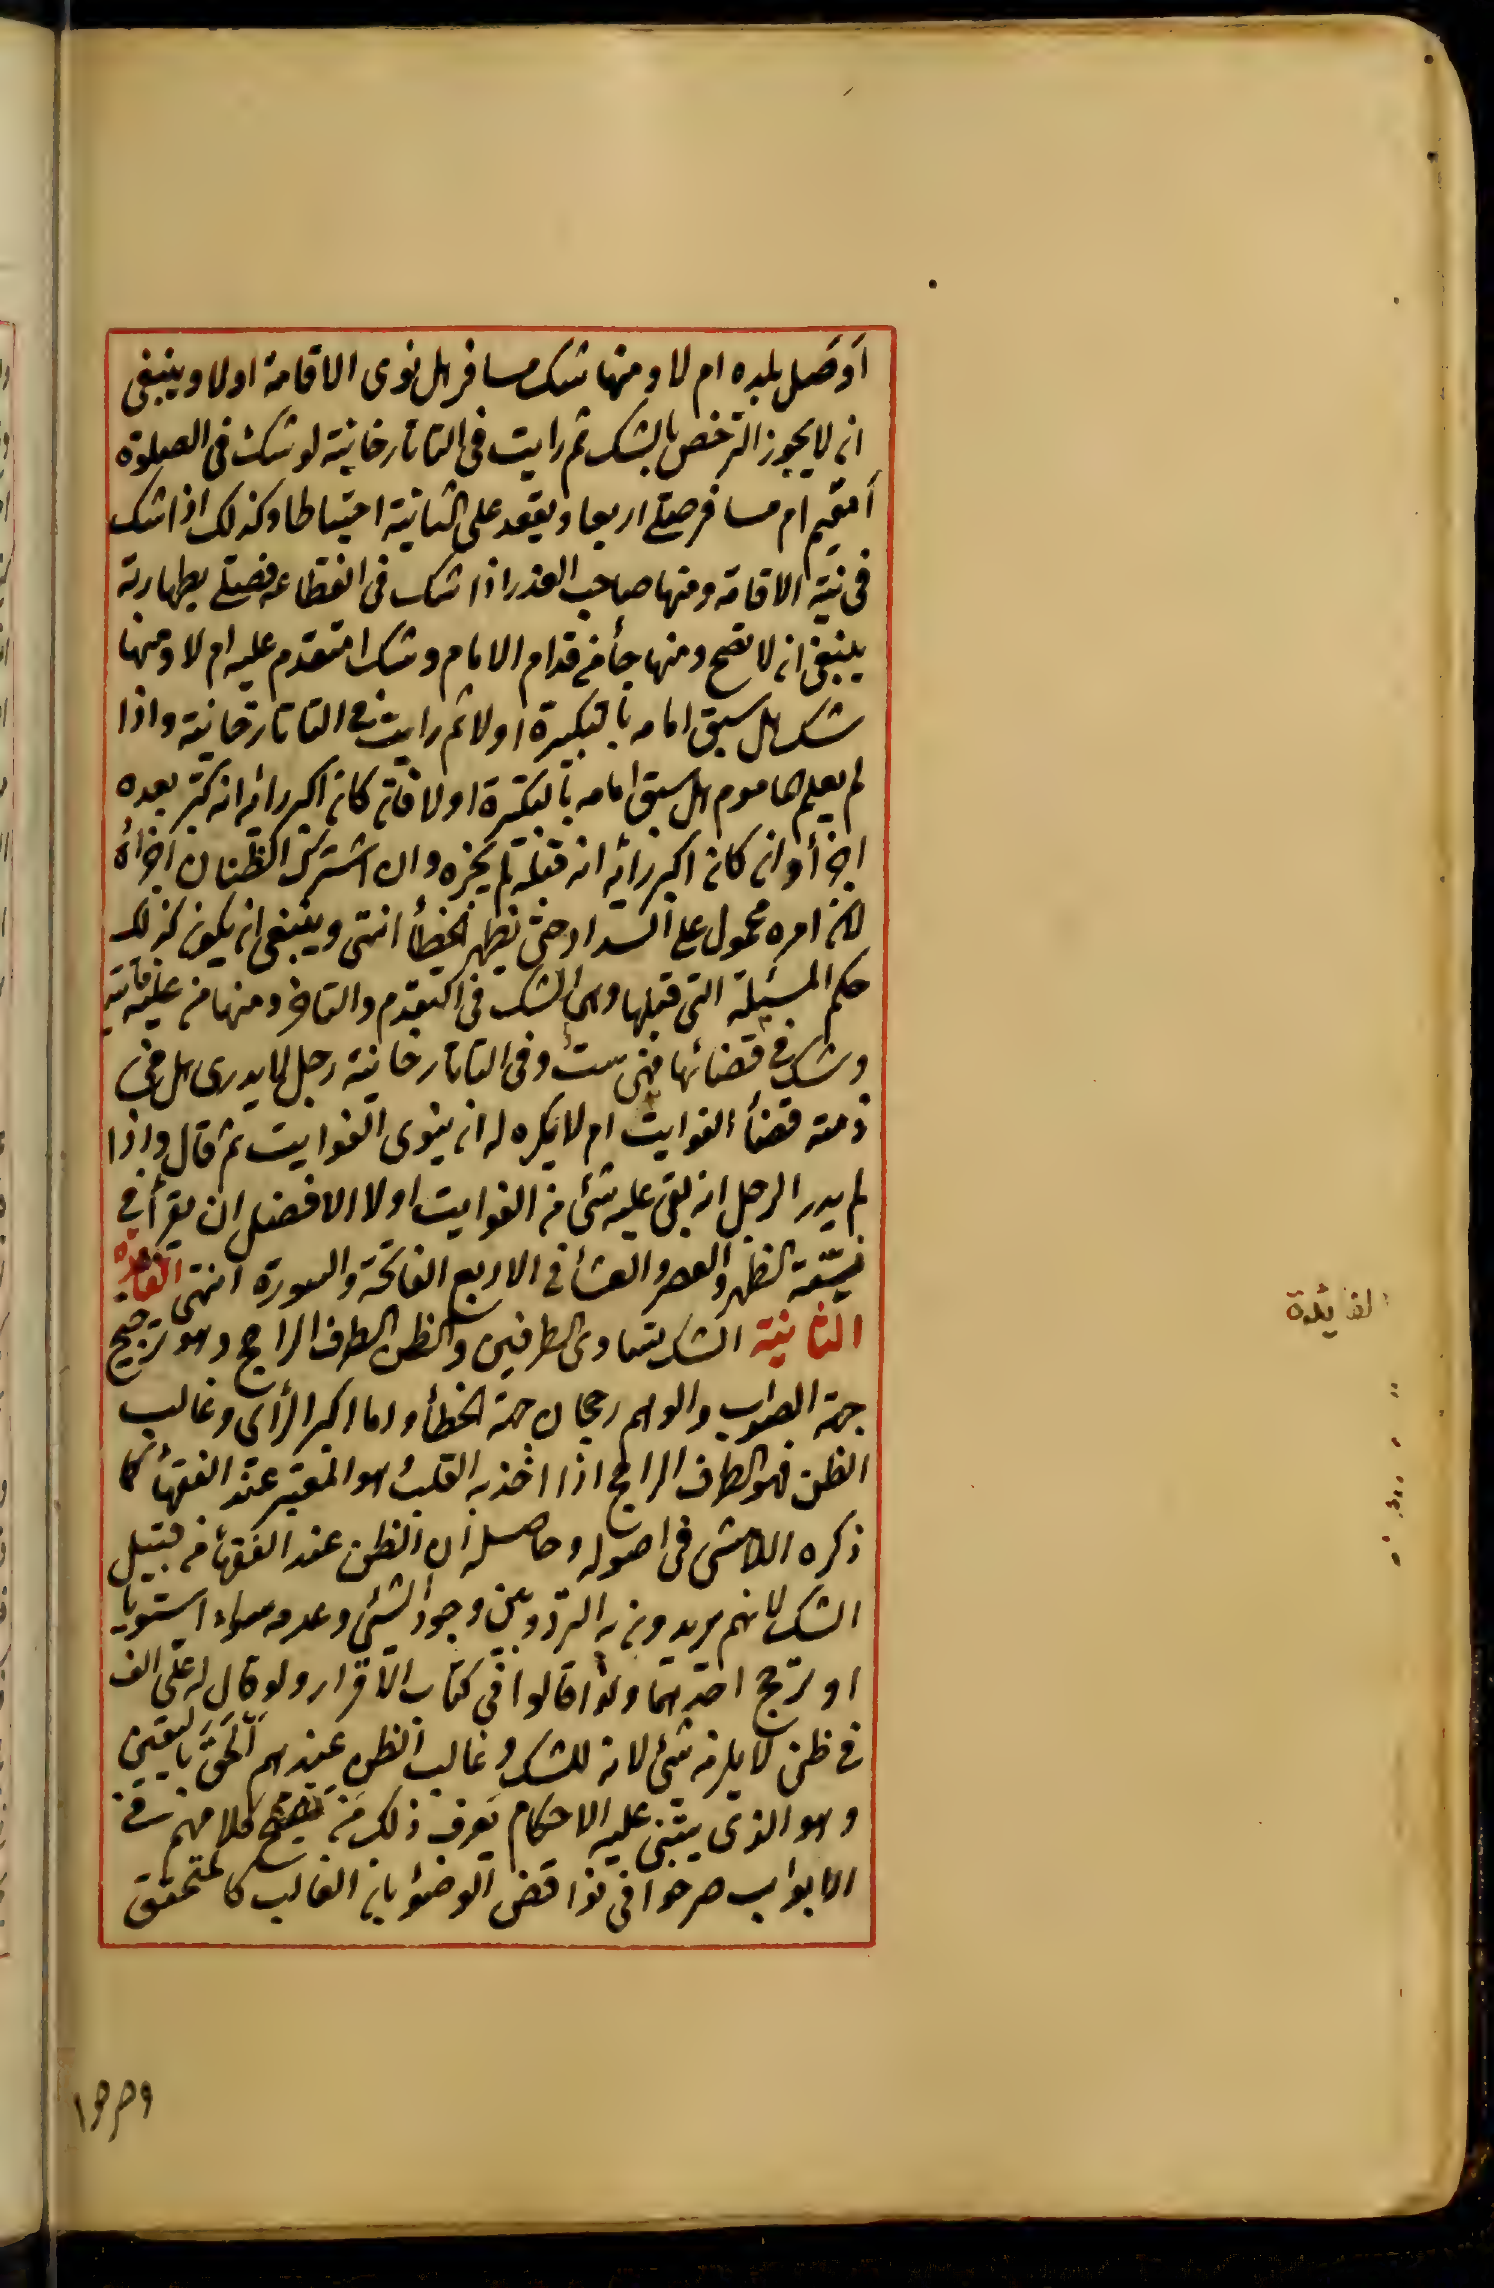 أوصل بلده ام لا ومنها شك مسافر هل نوى الاقامة اولا وينبغى
انه لا يجوز الترخص بالشك ثم رايت فى التاتارخانية لو شك فى الصلوة
أمقيم ام مسافر صلى اربعا ويقعد على الثانية احتياطا وكذلك اذا شك
فى نية الاقامة ومنها صاحب العذر اذا شك فى انقطاعه فصلى بطهارته
ينبغى انه لا تصح ومنها جأ من قدام الامام وشك امتقدم عليه ام لا ومنها
شك هل سبق امامه بالتكبيرة اولا ثم رايت فى التاتارخانية واذا
لم يعلم الماموم هل سبق امامه بالتكبيرة اولا فان كان اكبر رائه انه كبر بعده
اجزأه وان كان اكبر رائه انه قبله لم يجزه وان اشترك الظنان اجزأه
لان امره محمول على السداد حتى يظهر الخطأ انتهى وينبغى ان يكون كذلك
حكم المسئلة التى قبلها وهى الشك فى التقدم والتاخر ومنها من عليه فائتة
وشك فى قضائها فهى ست وفى التاتارخانية رجل لا يدرى هل فى
ذمته قضأ الفوايت ام لا يكره له ان ينوى الفوايت ثم قال واذا
لم يدر الرجل انه بقى عليه شئ من الفوايت اولا الافضل ان يقرأ فى
سنة الظهر والعصر والعشأ فى الاربع الفاتحة والسورة انتهى الفائدة
الثانية الشك تساوى الطرفين والظن الطرف الراجح وهو ترجيح
جهة الصواب والوهم رجحان جهة الخطأ واما اكبر الرأى وغالب
الظن فهو الطرف الراجح اذا اخذ به القلب هو المعتبر عند الفقهأ كما
ذكره اللامشى فى اصوله وحاصله ان الظن عند الفقهأ من قبيل
الشك لانهم يريدون به التردد بين وجود الشئ وعدمه سواء استويا
او ترجح احدهما ولذا قالوا فى كتاب الاقرار ولو قال له على الف
فى ظنى لا يلزمه شئ لانه للشك وغالب الظن عندهم ألحق باليقين
وهو الذى يبتنى عليه الاحكام يعرف ذلك من تصفح كلامهم فى
الابواب صرحوا فى نواقض الوضوء بان الغالب كالمتحقق
الفائدة